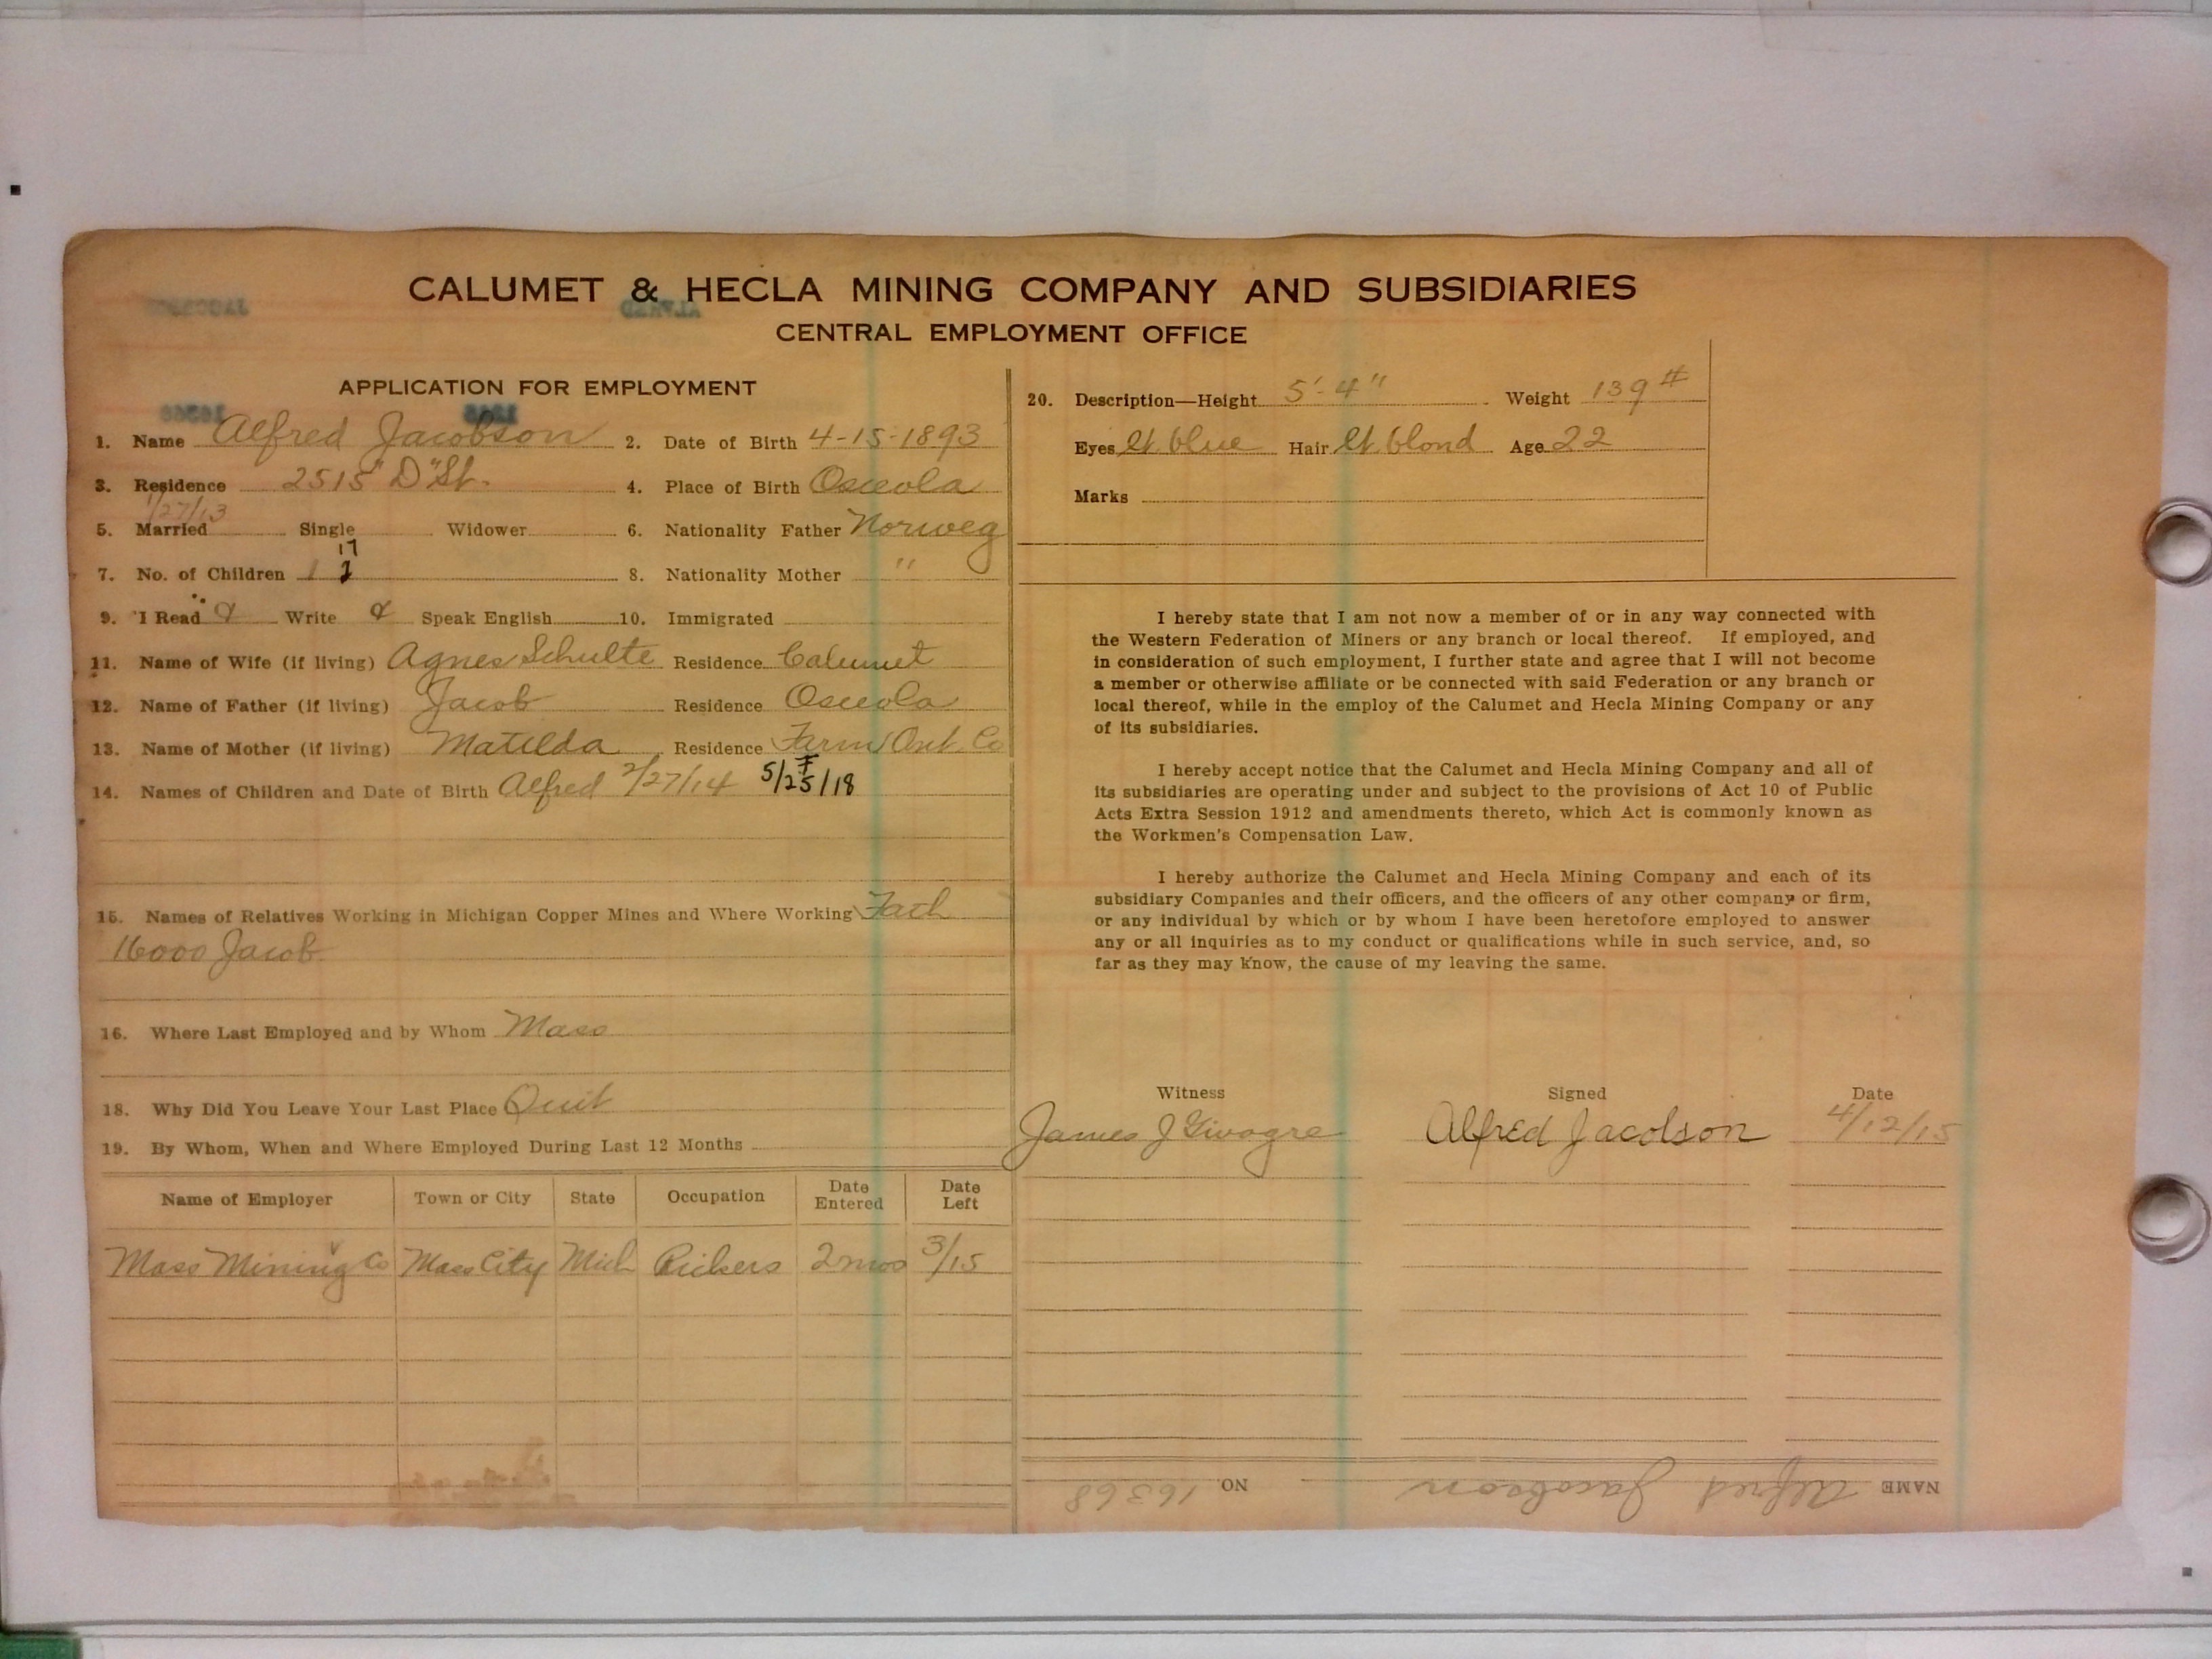 CALUMET & HECLA MINING COMPANY AND SUBSIDIARIES
CENTRAL EMPLOYMENT OFFICE
APPLICATION FOR EMPLOYMENT
1. Name Alfred Jacobson 2. Date of Birth 4-15-1893
3. Residence 2515 "D" St. 4. Place of Birth Osceola
1/27/13
5. Married Single Widower 6. Nationality Father Norweg
7. No. of Children 1 8. Nationality Mother "
9. I Read & Write & Speak English 10. Immigrated
11. Name of Wife (if living) Agnes Schulte Residence Calumet
12. Name of Father (if living) Jacob Residence Osceola
13. Name of Mother (if living) Matilda Residence Farm Ont. Co
14. Names of Children and Date of Birth Alfred 2/27/14 F 5/25/18
15. Names of Relatives Working in Michigan Copper Mines and Where Working Fath
16000 Jacob
16. Where Last Employed and by Whom Mass
18. Why Did You Leave Your Last Place Quit
19. By Whom, When and Where Employed During Last 12 Months
Name of Employer Town or City State Occupation Date Entered Date Left
Mass Mining Co Mass City Mich Pickers 2 mos 3/15
20. Description—Height 5'-4" Weight 139#
Eyes lt. blue Hair lt. blond Age 22
Marks
I hereby state that I am not now a member of or in any way connected with
the Western Federation of Miners or any branch or local thereof. If employed, and
in consideration of such employment, I further state and agree that I will not become
a member or otherwise affiliate or be connected with said Federation or any branch or
local thereof, while in the employ of the Calumet and Hecla Mining Company or any
of its subsidiaries.
I hereby accept notice that the Calumet and Hecla Mining Company and all of
its subsidiaries are operating under and subject to the provisions of Act 10 of Public
Acts Extra Session 1912 and amendments thereto, which Act is commonly known as
the Workmen's Compensation Law.
I hereby authorize the Calumet and Hecla Mining Company and each of its
subsidiary Companies and their officers, and the officers of any other company or firm,
or any individual by which or by whom I have been heretofore employed to answer
any or all inquiries as to my conduct or qualifications while in such service, and, so
far as they may know, the cause of my leaving the same.
Witness Signed Date
James J Alfred Jacobson 4/12/15
NAME Alfred Jacobson NO. 16368